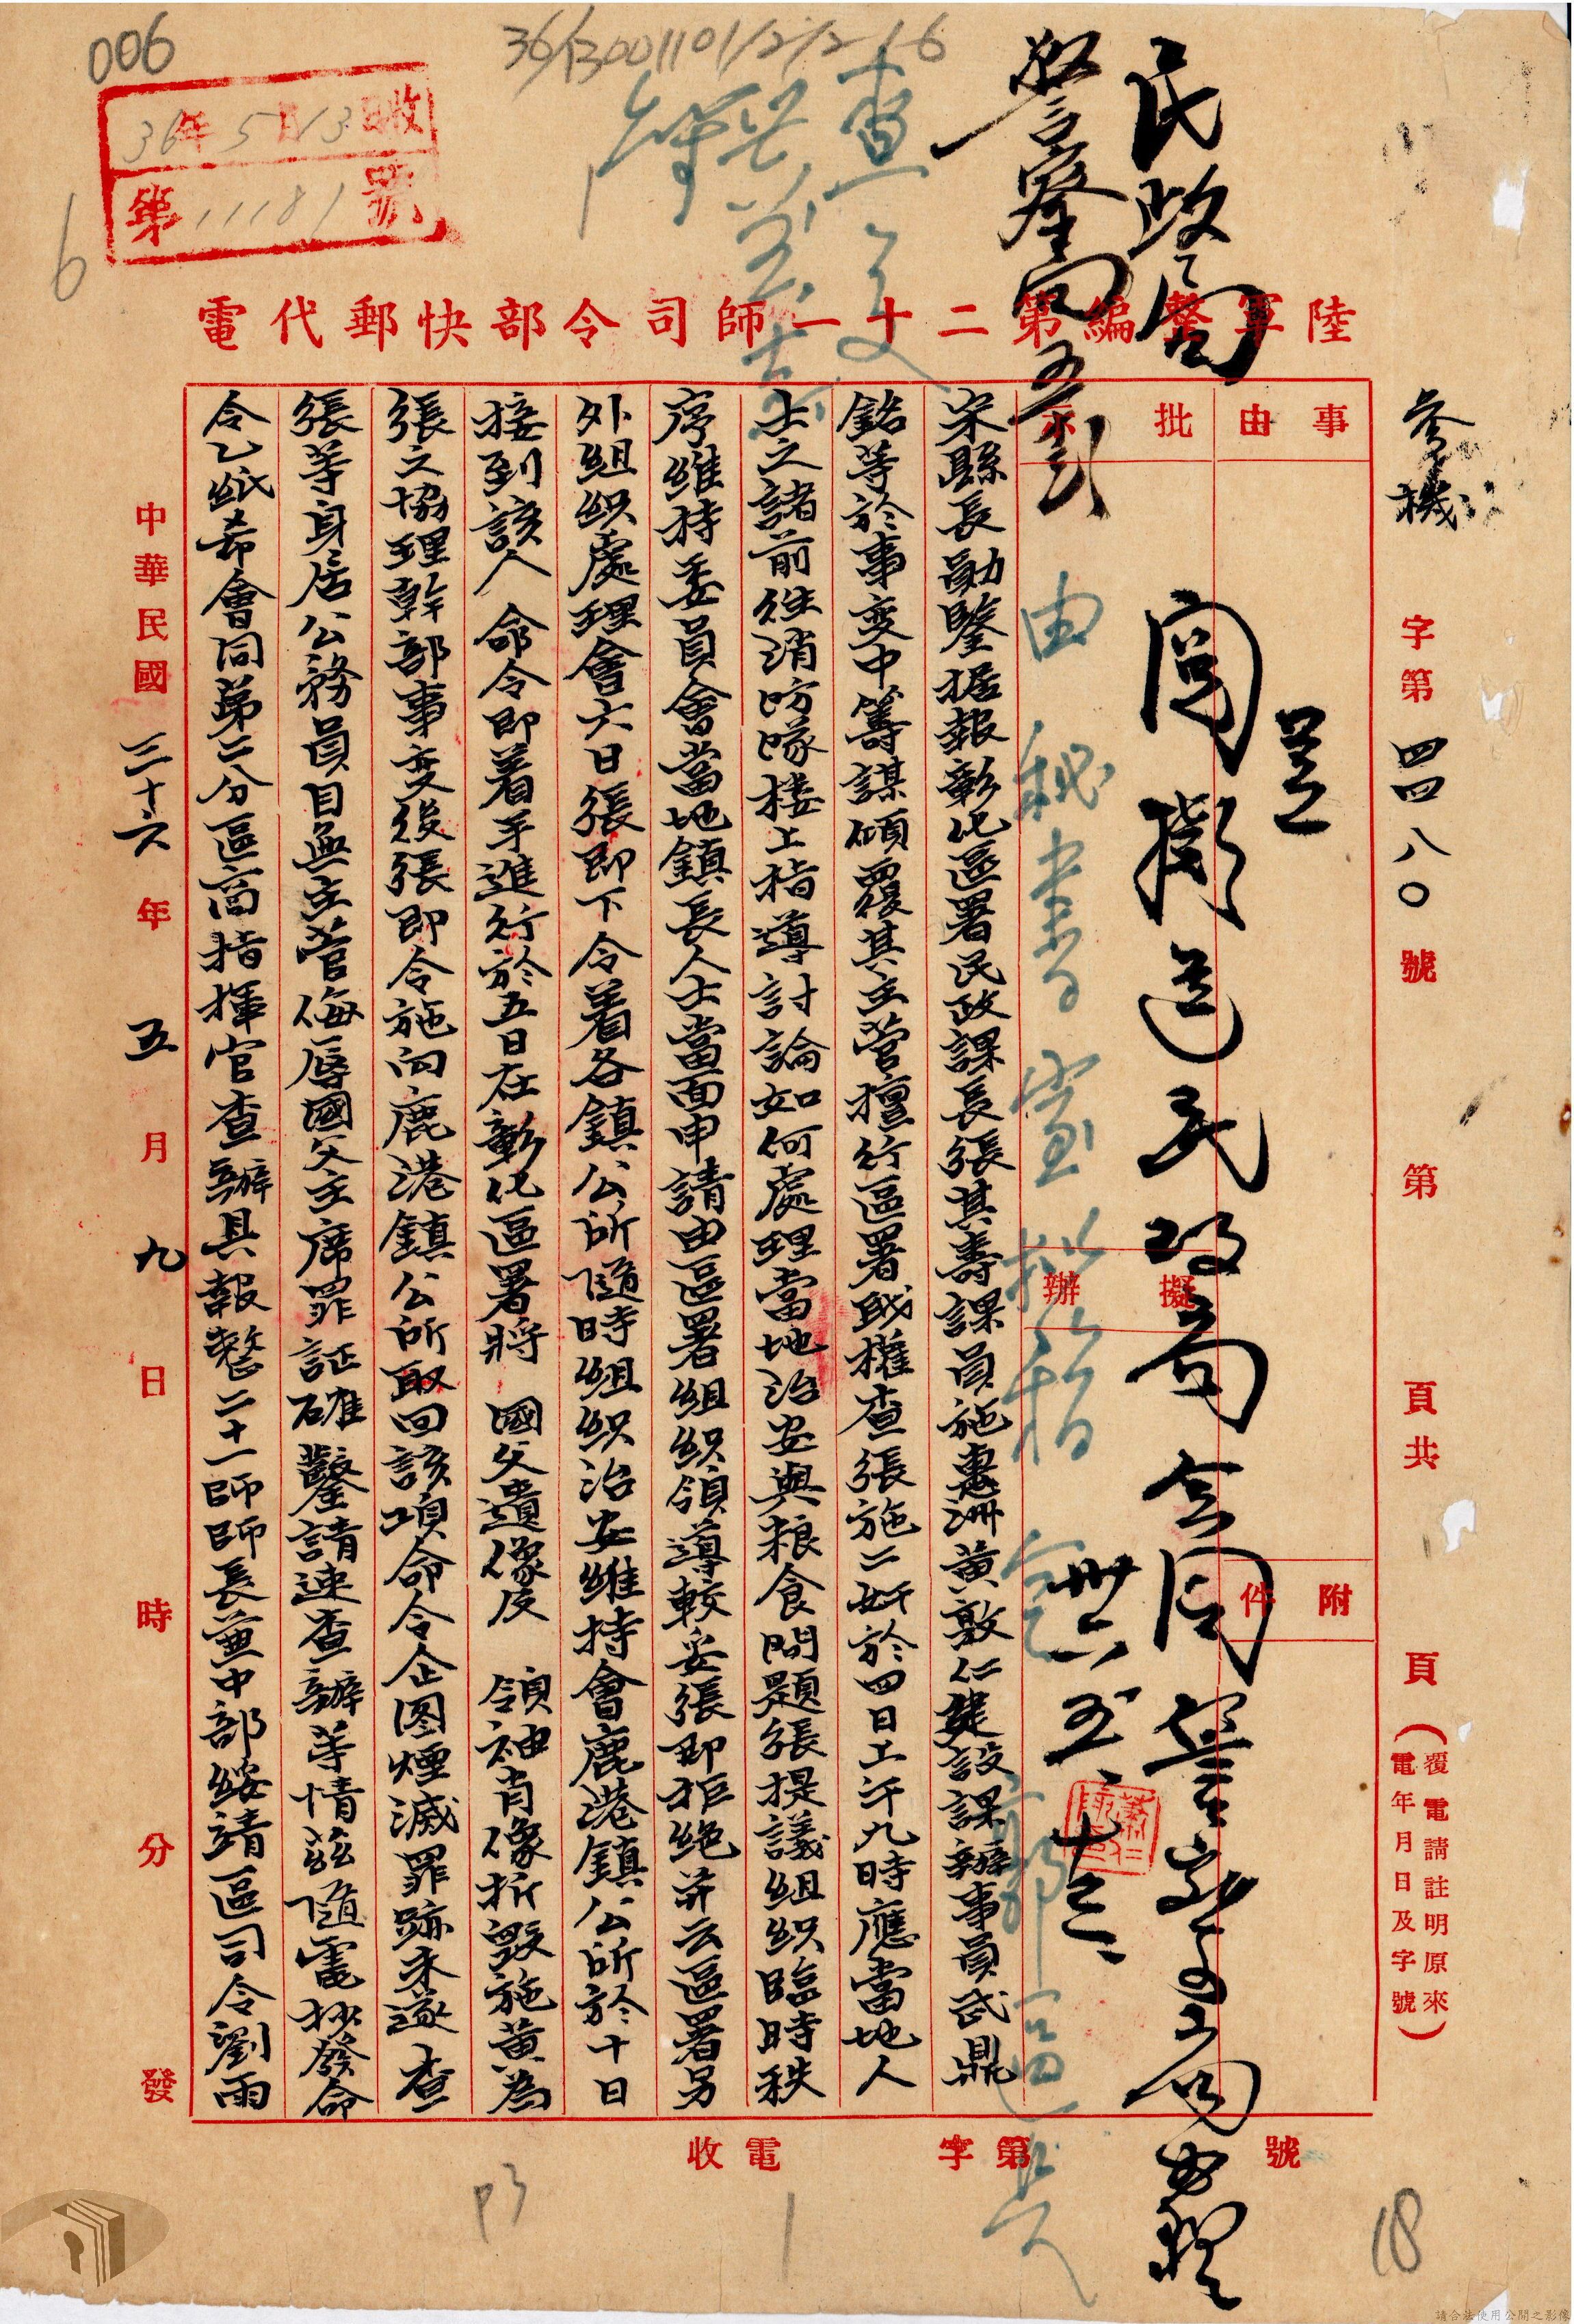 006
36/B001101/2/2/16
收
36年5月13日
第11181號
6
民政局
警察局
查
陸軍整編第二十一師司令部快郵代電
參機
字第四四八〇號 第 頁共 頁(覆電請註明原來電年月日及字號)
事由
批示
擬辦
附件
呈
民政局會同警察局辦理
由秘書室
卅六、五、十三
宋縣長勛鑒據報彰化區署民政課長張其壽課員施惠洲黃敦仁建設課辦事員武鼎
銘等於事变中籌謀傾覆其主管擅行區署職權查張施二奸於四日上午九時應當地人
士之諸前往消防隊楼上指導討論如何處理當地治安與粮食問題張提議組织臨時秩
序維持委員會當地鎮長人士當面申請由區署組织領導較妥張即拒絕并云區署另
外組织處理會六日張即下令着各鎮公所隨時組织治安維持會鹿港鎮公所於十日
接到該人命令即着手進行於五日在彰化區署將 國父遺像及 領袖肖像折毀施黃為
張之協理幹部事变後張即令施向鹿港鎮公所取回該項命令企图煙滅罪跡未遂查
張等身居公務員目無主管侮辱國父主席罪証確鑿請速查辦等情茲隨電抄發命
令乙紙希會同第二分區高指揮官查辦具報整二十一師師長兼中部綏靖區司令劉雨
中華民國三十六年五月九日 時 分 發
收電 字第 號
P3
1
18
請合法使用公開之影像